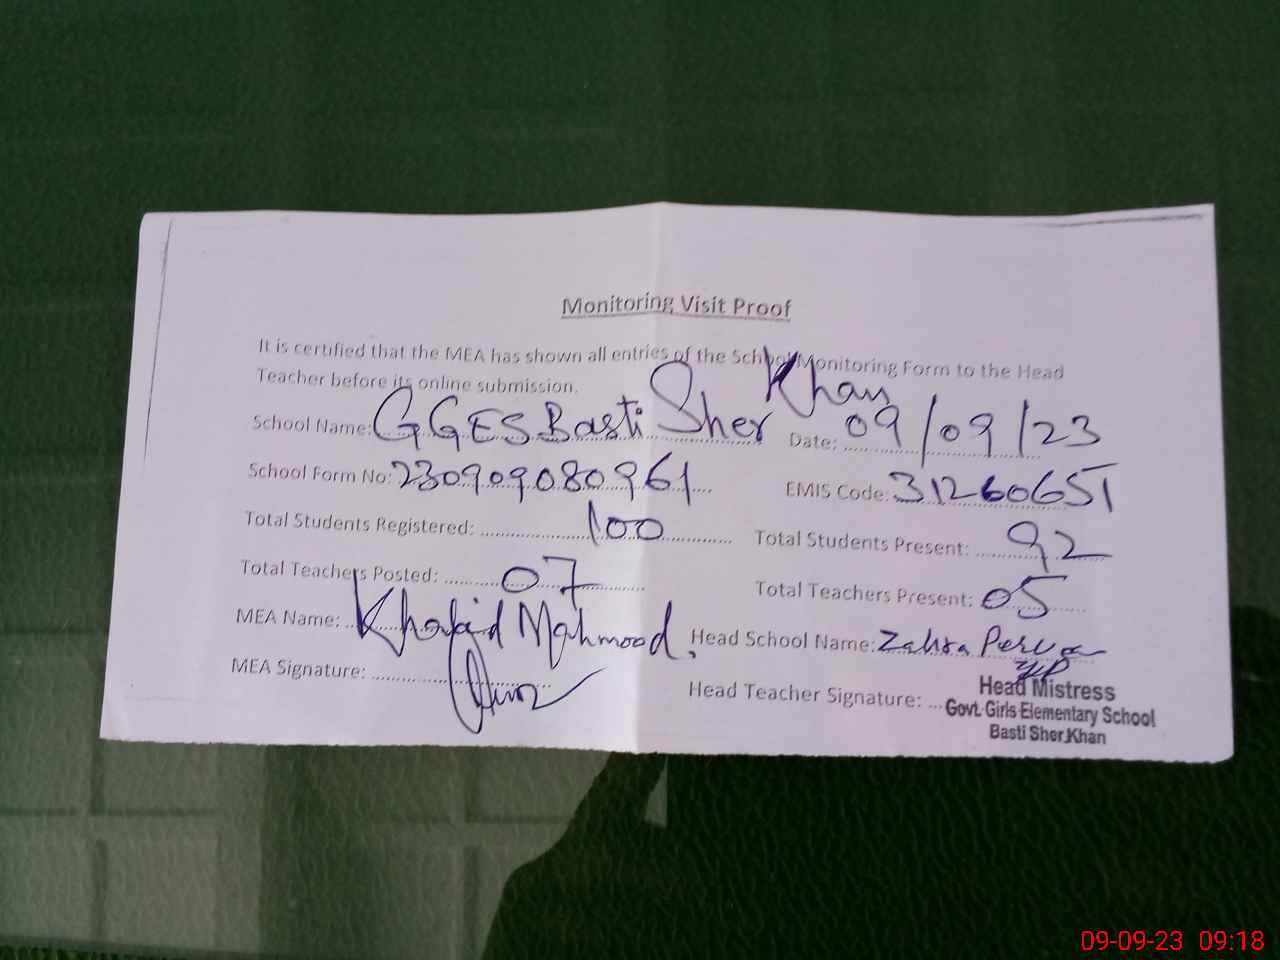 Monitoring Visit Proof
It is certified that the MEA has shown all entries of the School Monitoring Form to the Head
Teacher before its online submission.
School Name: GGES Basti Sher Khan Date: 09/09/23
School Form No: 230909080961 EMIS Code: 31260651
Total Students Registered: 100 Total Students Present: 92
Total Teachers Posted: 07 Total Teachers Present: 05
MEA Name: Khalid Mahmood, Head School Name: Zahra
MEA Signature: Head Teacher Signature:
Head Mistress
Govt. Girls Elementary School
Basti Sher Khan
09-09-23 09:18